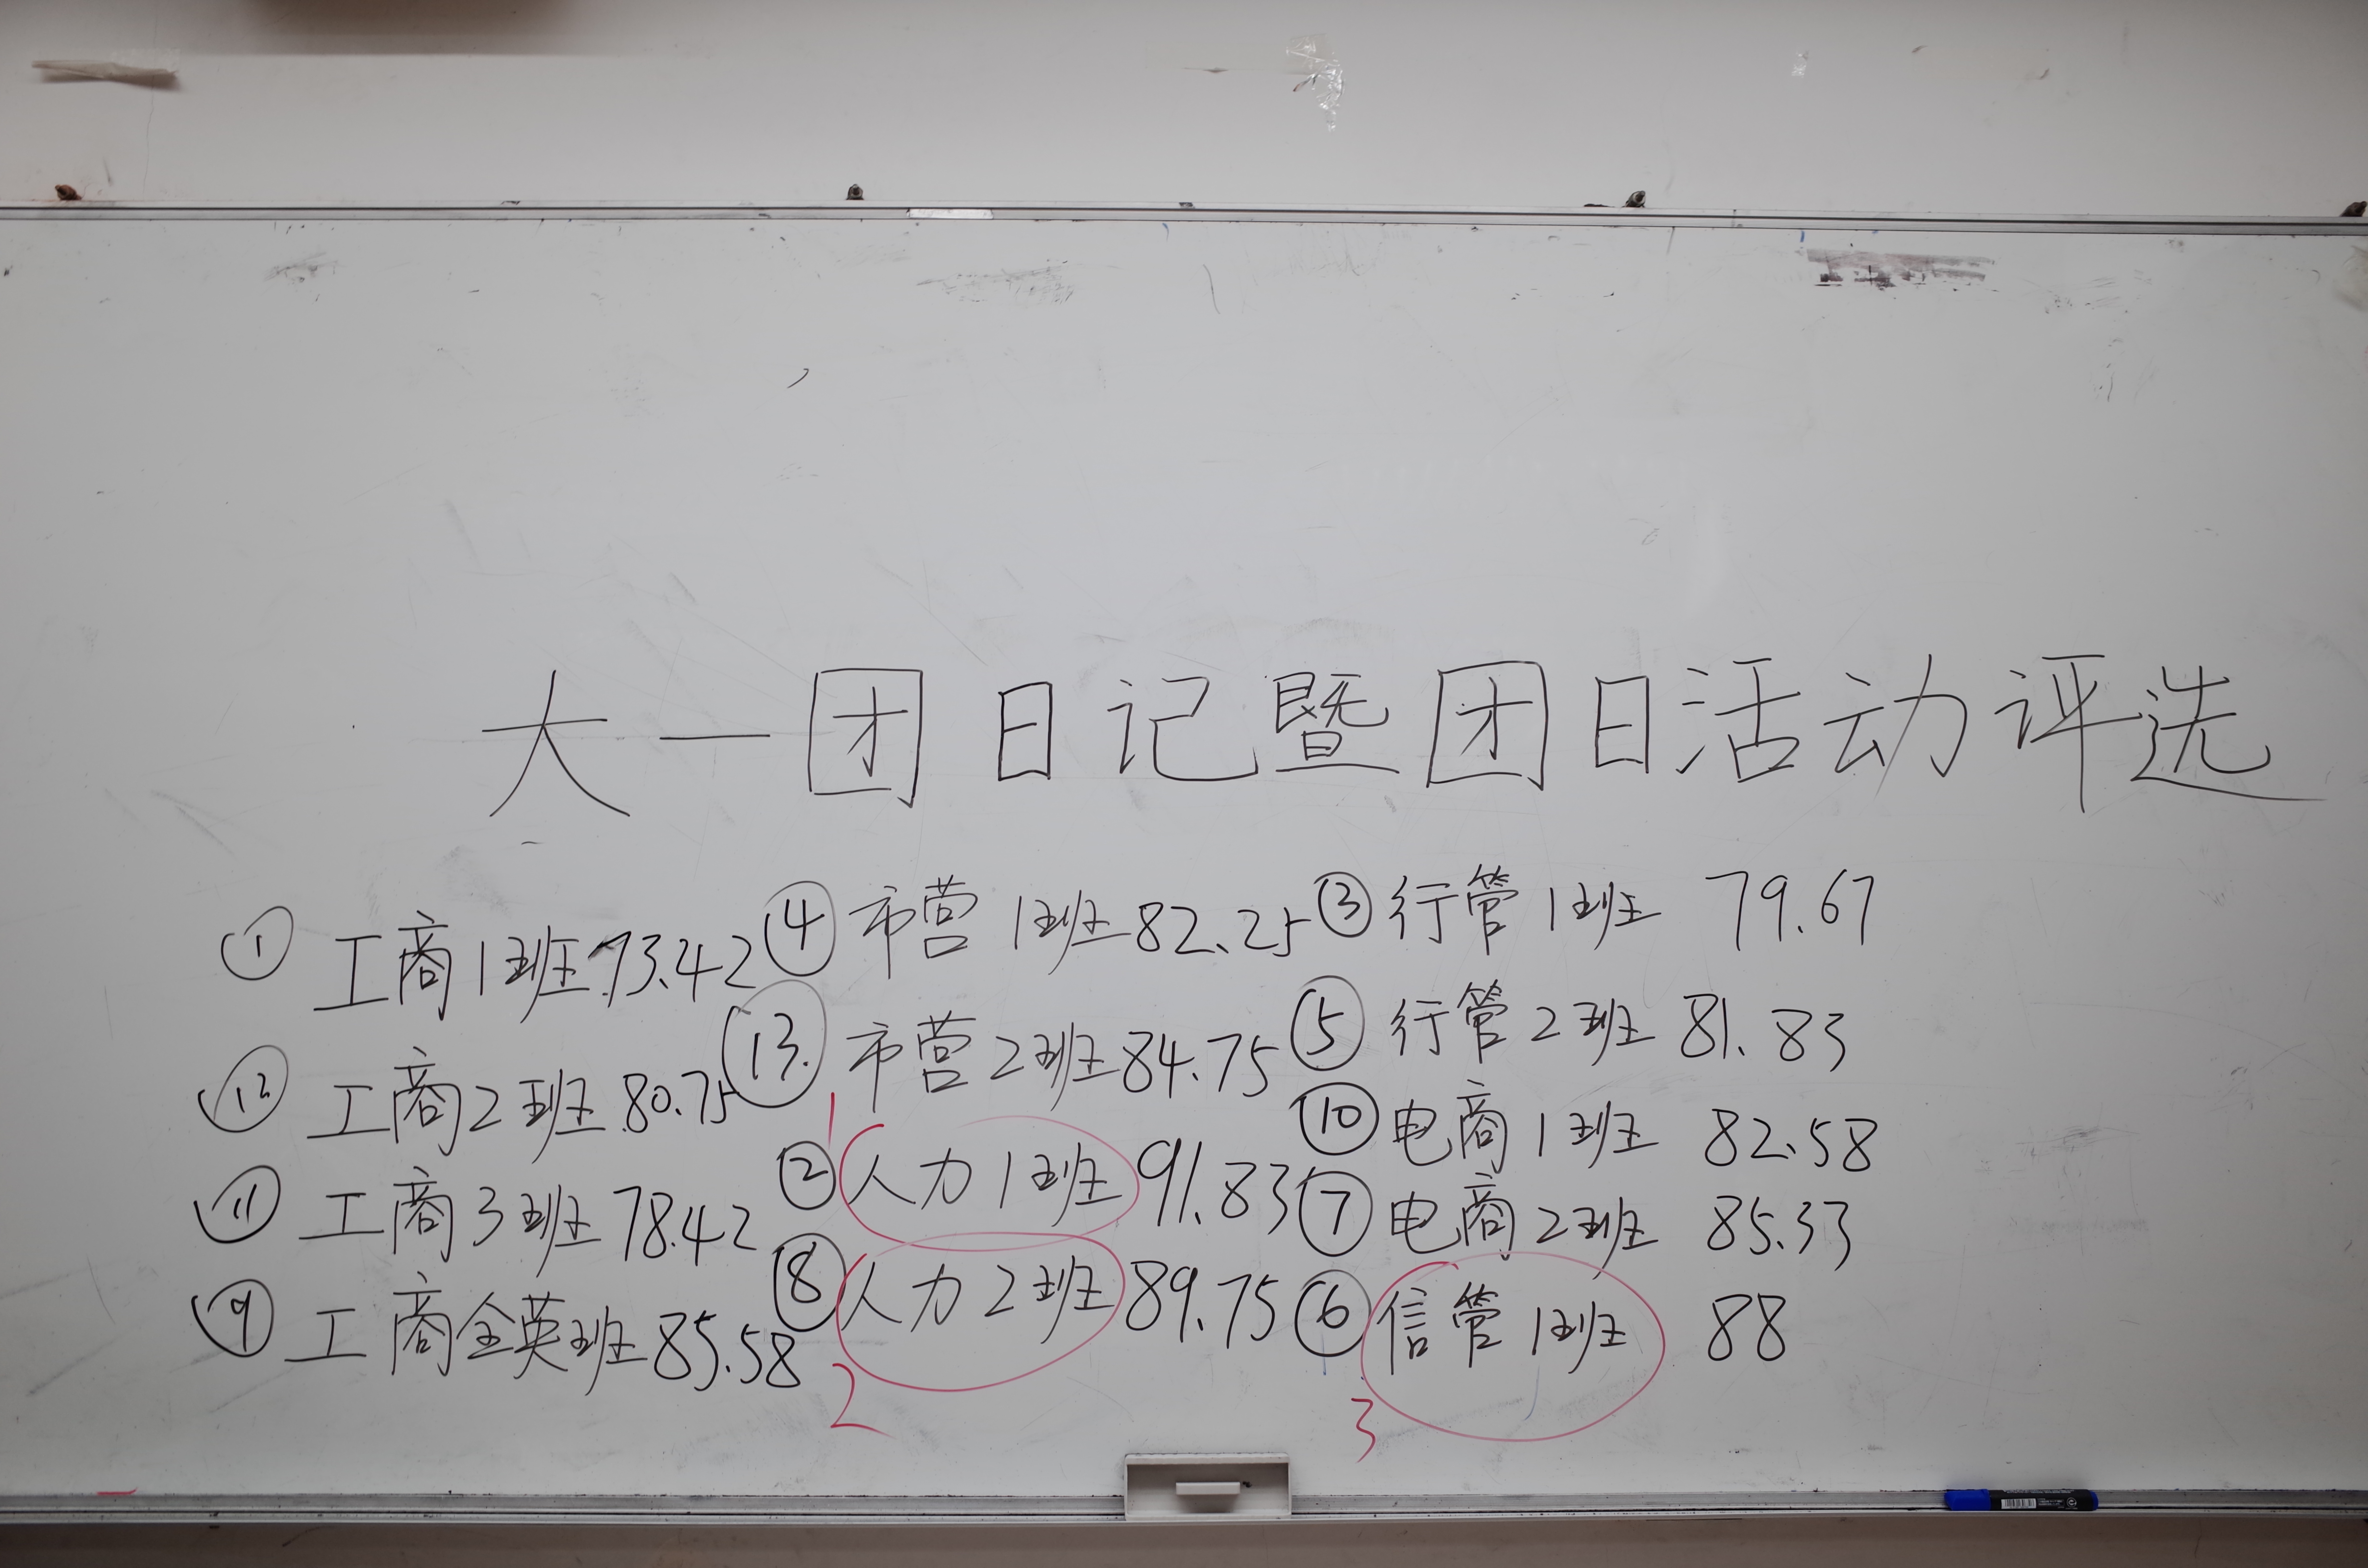 大一团日记暨团日活动评选
① 工商1班 73.42
⑫ 工商2班 80.75
⑪ 工商3班 78.42
⑨ 工商全英班 85.58
④ 市营1班 82.25
⑬ 市营2班 84.75
1
② 人力1班 91.83
⑧ 人力2班 89.75
2
③ 行管1班 79.67
⑤ 行管2班 81.83
⑩ 电商1班 82.58
⑦ 电商2班 85.33
⑥ 信管1班 88
3